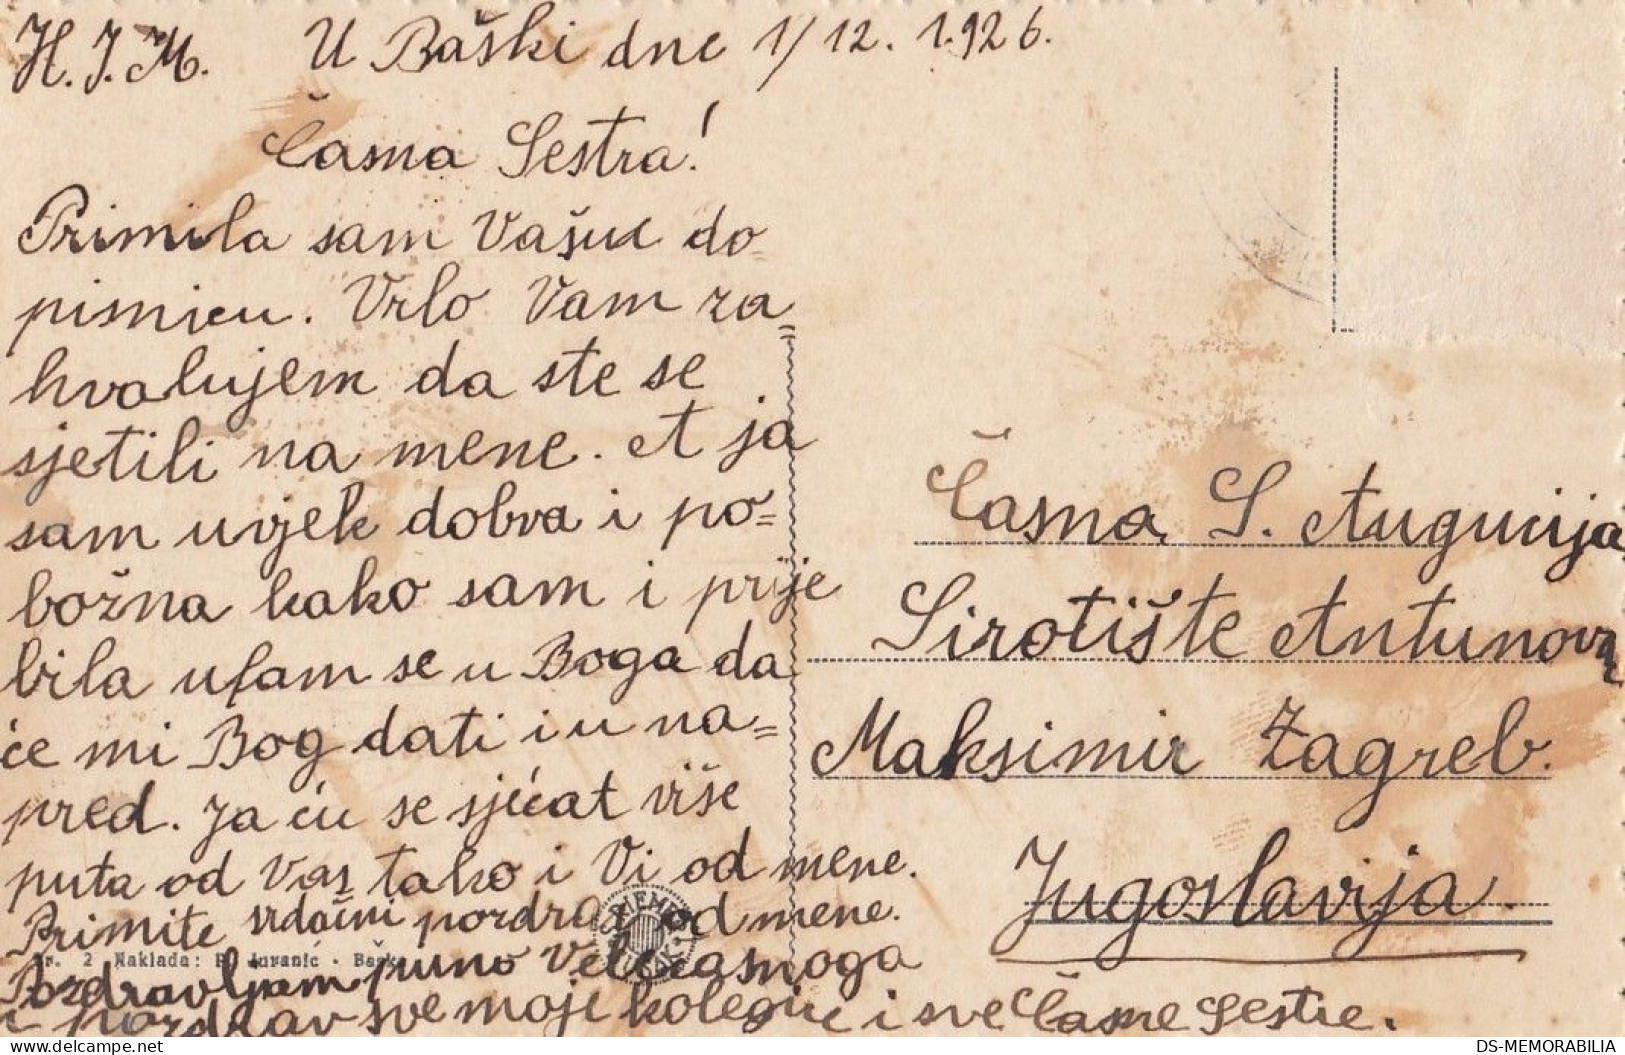 H. J. M. U Baški dne 1/12. 1926.
Časna Sestra!
Primila sam Vašu do
pisnicu. Vrlo Vam za=
hvalujem da ste se
sjetili na mene. A ja
sam uvjek dobra i po=
božna kako sam i prije
bila ufam se u Boga da
će mi Bog dati i u na=
pred. Ja ću se sjećat više
puta od Vas tako i Vi od mene.
Primite srdačni pozdrav od mene.
Pozdravljam puno Velečasnoga
i pozdrav sve moje kolegice i sve Časne Sestre.
Časna S.
Sirotište Antunovac
Maksimir Zagreb.
Jugoslavija.
Br. 2 Naklada: Juranić - Baška
DS-MEMORABILIA